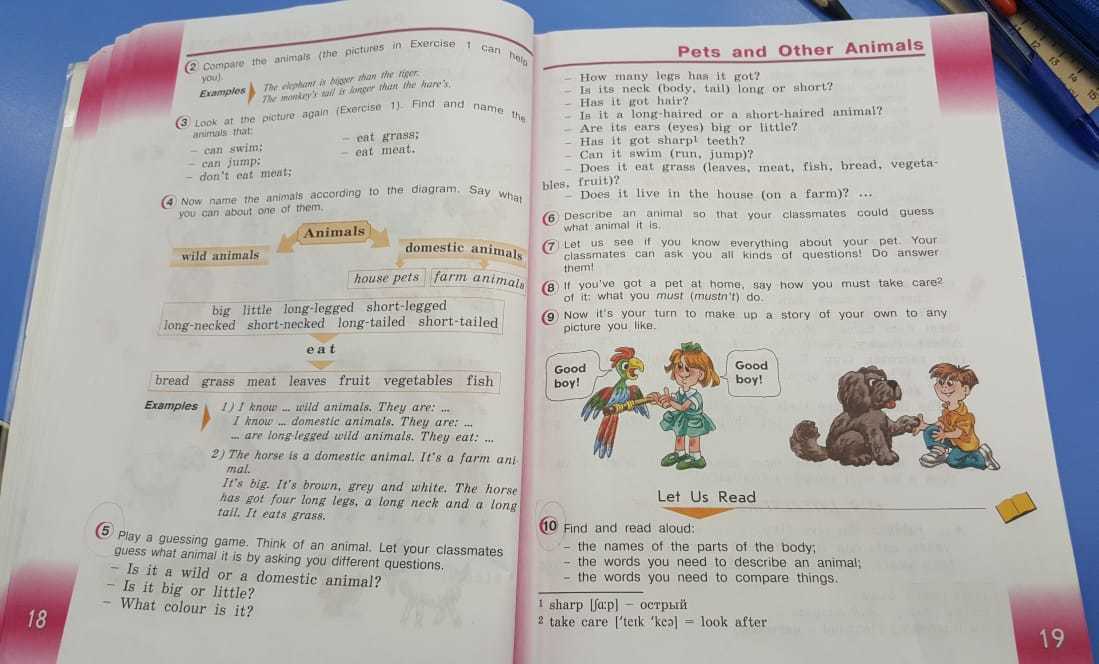 2 Compare the animals (the pictures in Exercise 1 can help
you).
Examples
The elephant is bigger than the tiger.
The monkey's tail is longer than the hare's.
3 Look at the picture again (Exercise 1). Find and name the
animals that:
– can swim;
– can jump;
– don't eat meat;
– eat grass;
– eat meat.
4 Now name the animals according to the diagram. Say what
you can about one of them.
Animals
wild animals
domestic animals
house pets
farm animals
big little long-legged short-legged
long-necked short-necked long-tailed short-tailed
eat
bread grass meat leaves fruit vegetables fish
Examples
1) I know ... wild animals. They are: ...
I know ... domestic animals. They are: ...
... are long-legged wild animals. They eat: ...
2) The horse is a domestic animal. It's a farm ani-
mal.
It's big. It's brown, grey and white. The horse
has got four long legs, a long neck and a long
tail. It eats grass.
5 Play a guessing game. Think of an animal. Let your classmates
guess what animal it is by asking you different questions.
– Is it a wild or a domestic animal?
– Is it big or little?
– What colour is it?
18
Pets and Other Animals
– How many legs has it got?
– Is its neck (body, tail) long or short?
– Has it got hair?
– Is it a long-haired or a short-haired animal?
– Are its ears (eyes) big or little?
– Has it got sharp¹ teeth?
– Can it swim (run, jump)?
– Does it eat grass (leaves, meat, fish, bread, vegeta-
bles, fruit)?
– Does it live in the house (on a farm)? ...
6 Describe an animal so that your classmates could guess
what animal it is.
7 Let us see if you know everything about your pet. Your
classmates can ask you all kinds of questions! Do answer
them!
8 If you've got a pet at home, say how you must take care²
of it: what you must (mustn't) do.
9 Now it's your turn to make up a story of your own to any
picture you like.
Good
boy!
Good
boy!
Let Us Read
10 Find and read aloud:
– the names of the parts of the body;
– the words you need to describe an animal;
– the words you need to compare things.
¹ sharp [ʃɑːp] – острый
² take care [ˈteɪk ˈkeə] = look after
19